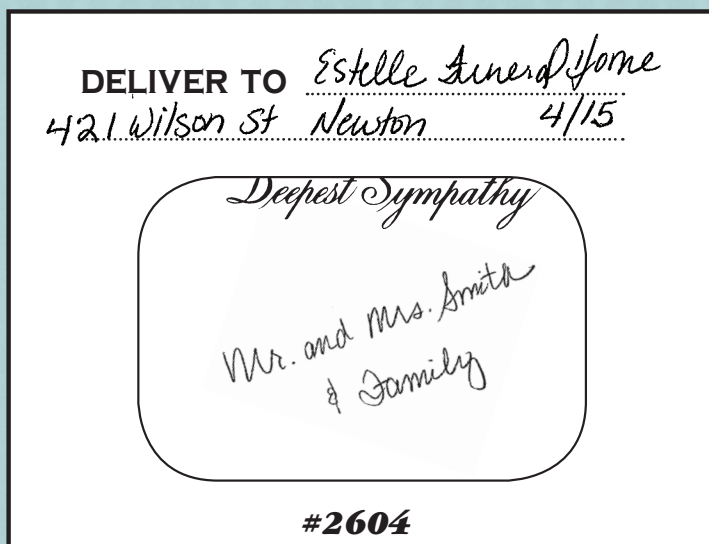 DELIVER TO Estelle Funeral Home
421 Wilson St Newton 4/15
Deepest Sympathy
Mr. and Mrs. Smith
& Family
#2604